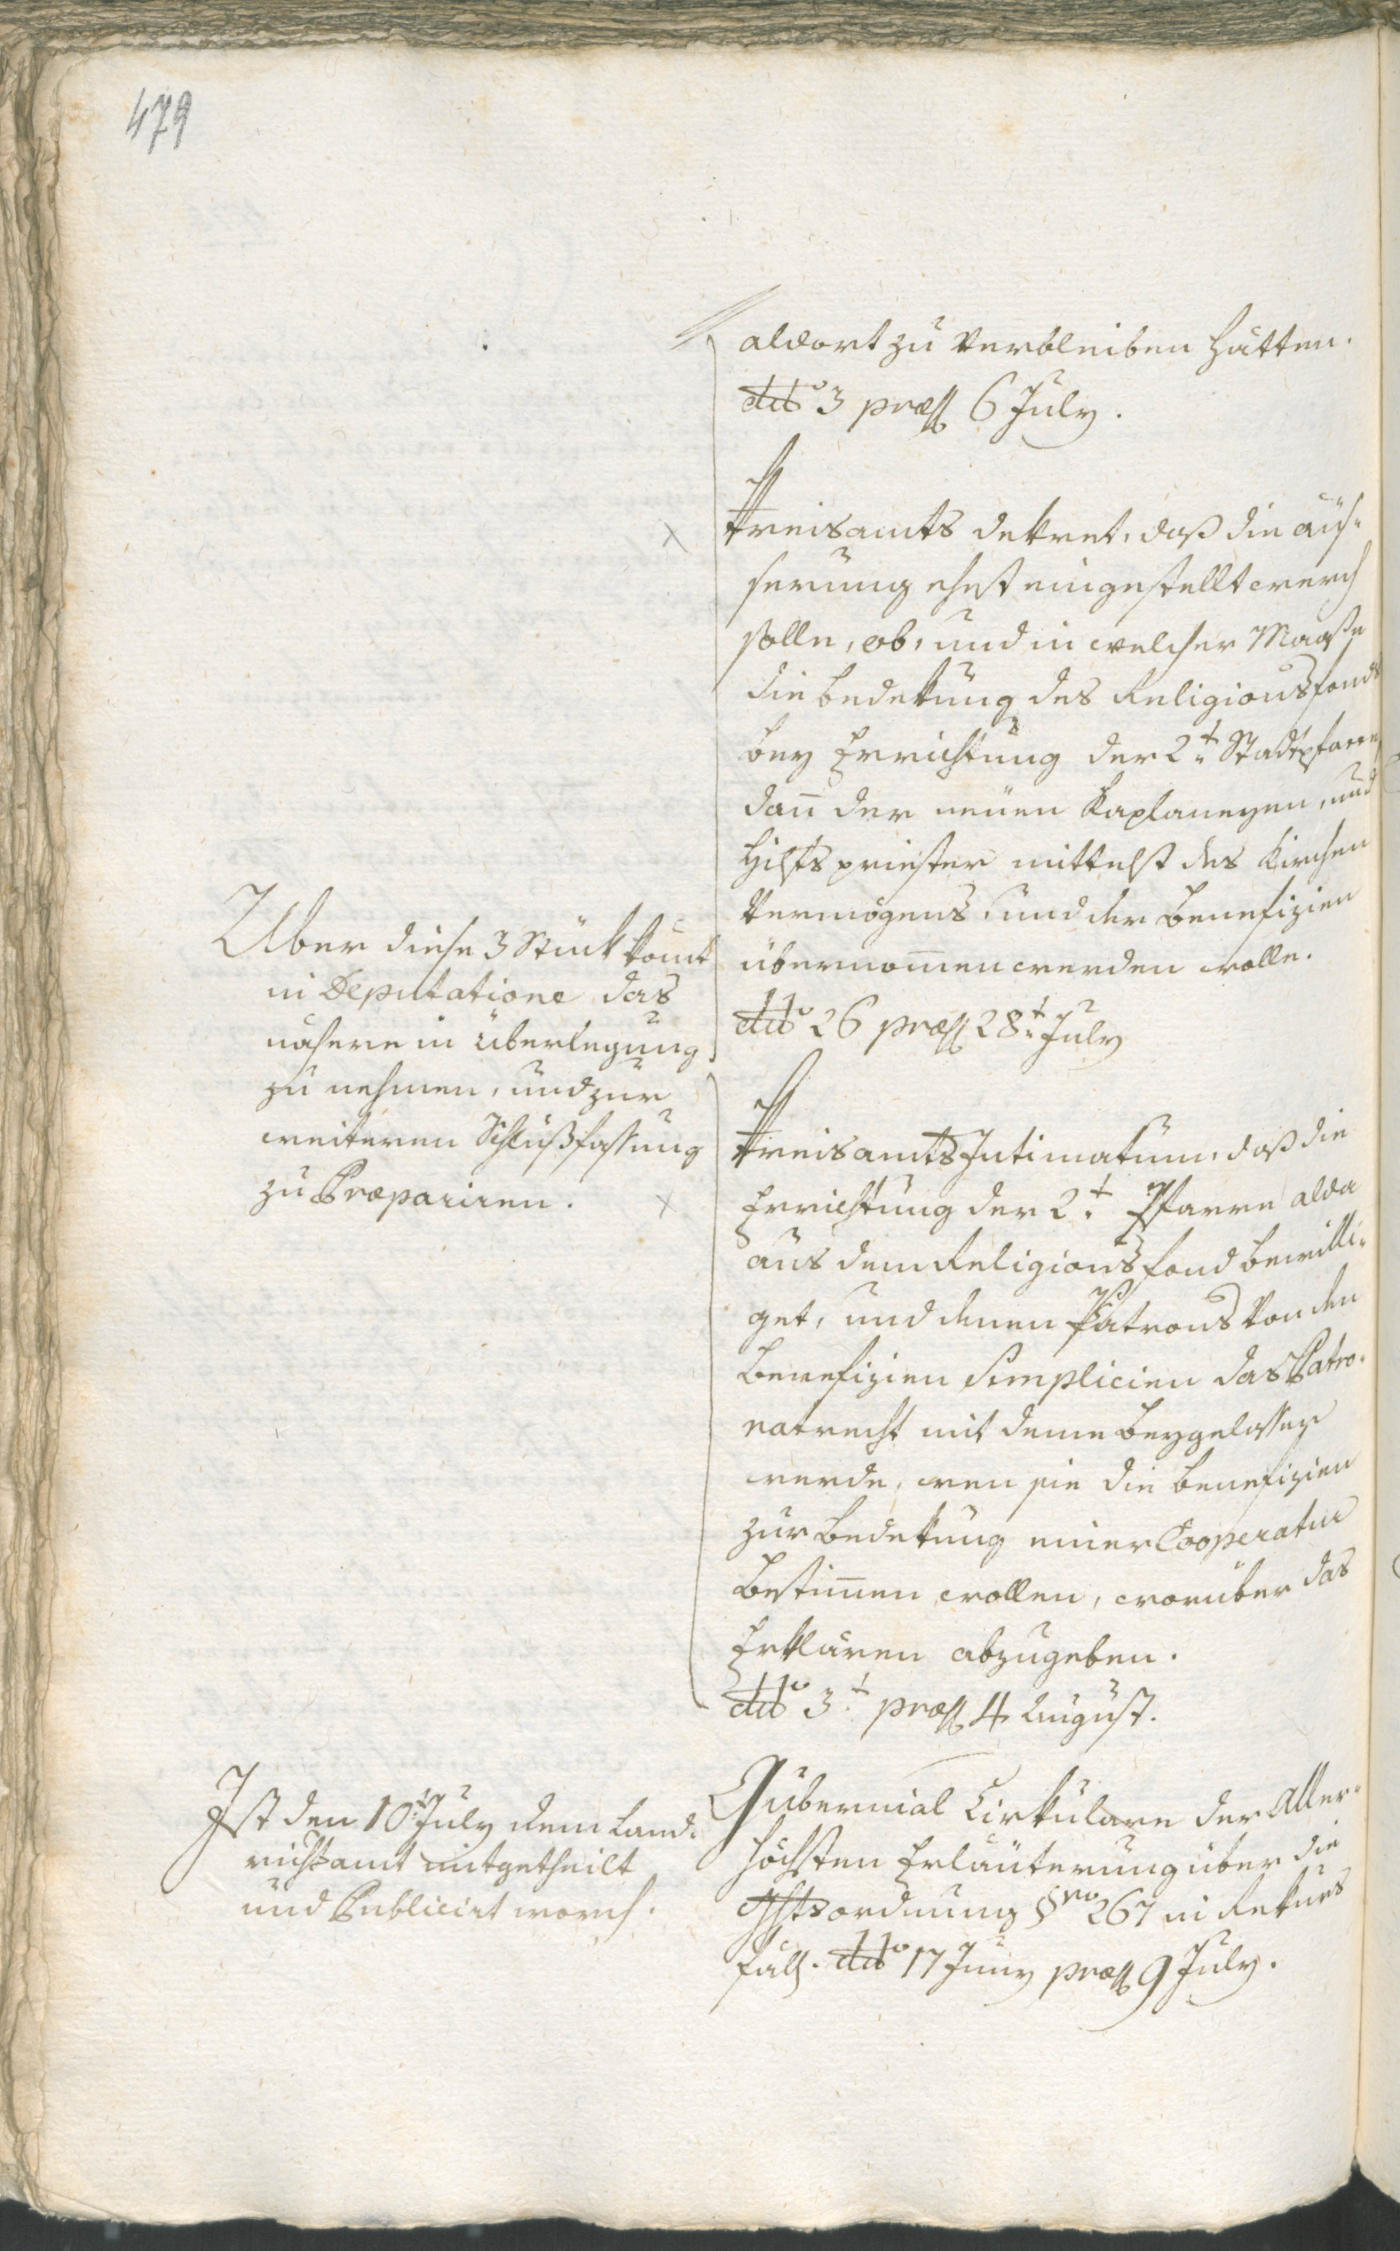 479
aldort zu verbleiben hätten.
ddto 3 præs 6 July.
Kreisamts dekret, daß die äus-
serung ehest eingestellt werd
solle, ob, und in welcher Maaße
die bedekung des Religionsfonds
bey Errichtung der 2t Stadtpfarre,
dañ der neüen Kaplaneyen, und
Hilfspriester mittelst des Kirchen
Vermögens, und der Benefizien
übernom̄en werden wolle.
ddto 26 præs 28t July
Uber diese 3 Stück kom̄t
in Deputatione das
nähere in überlegung
zu nehmen, und zur
weiteren Schlußfassung
zu Præpariren.
Kreisamts Intimatum, daß die
Errichtung der 2t Pfarre alda
aus dem Religions fond bewilli-
get, und denen Patrons von den
Benefizien Simplicien das Patro-
natrecht mit deme beygelassen
werde, wen sie die Benefizien
zur bedekung einer Cooperatur
bestim̄en wollen, worüber das
Erklären abzugeben.
ddto 3t præs 4 August.
Ist den 10t July dem Land-
richtamt mitgetheilt
und Publicirt word.
Gubernial Cirkulare der Aller-
höchsten Erläuterung über die
Ghtsordnung §vo 267 in Rekurs
fäll. ddto 17 Juny præs 9 July.